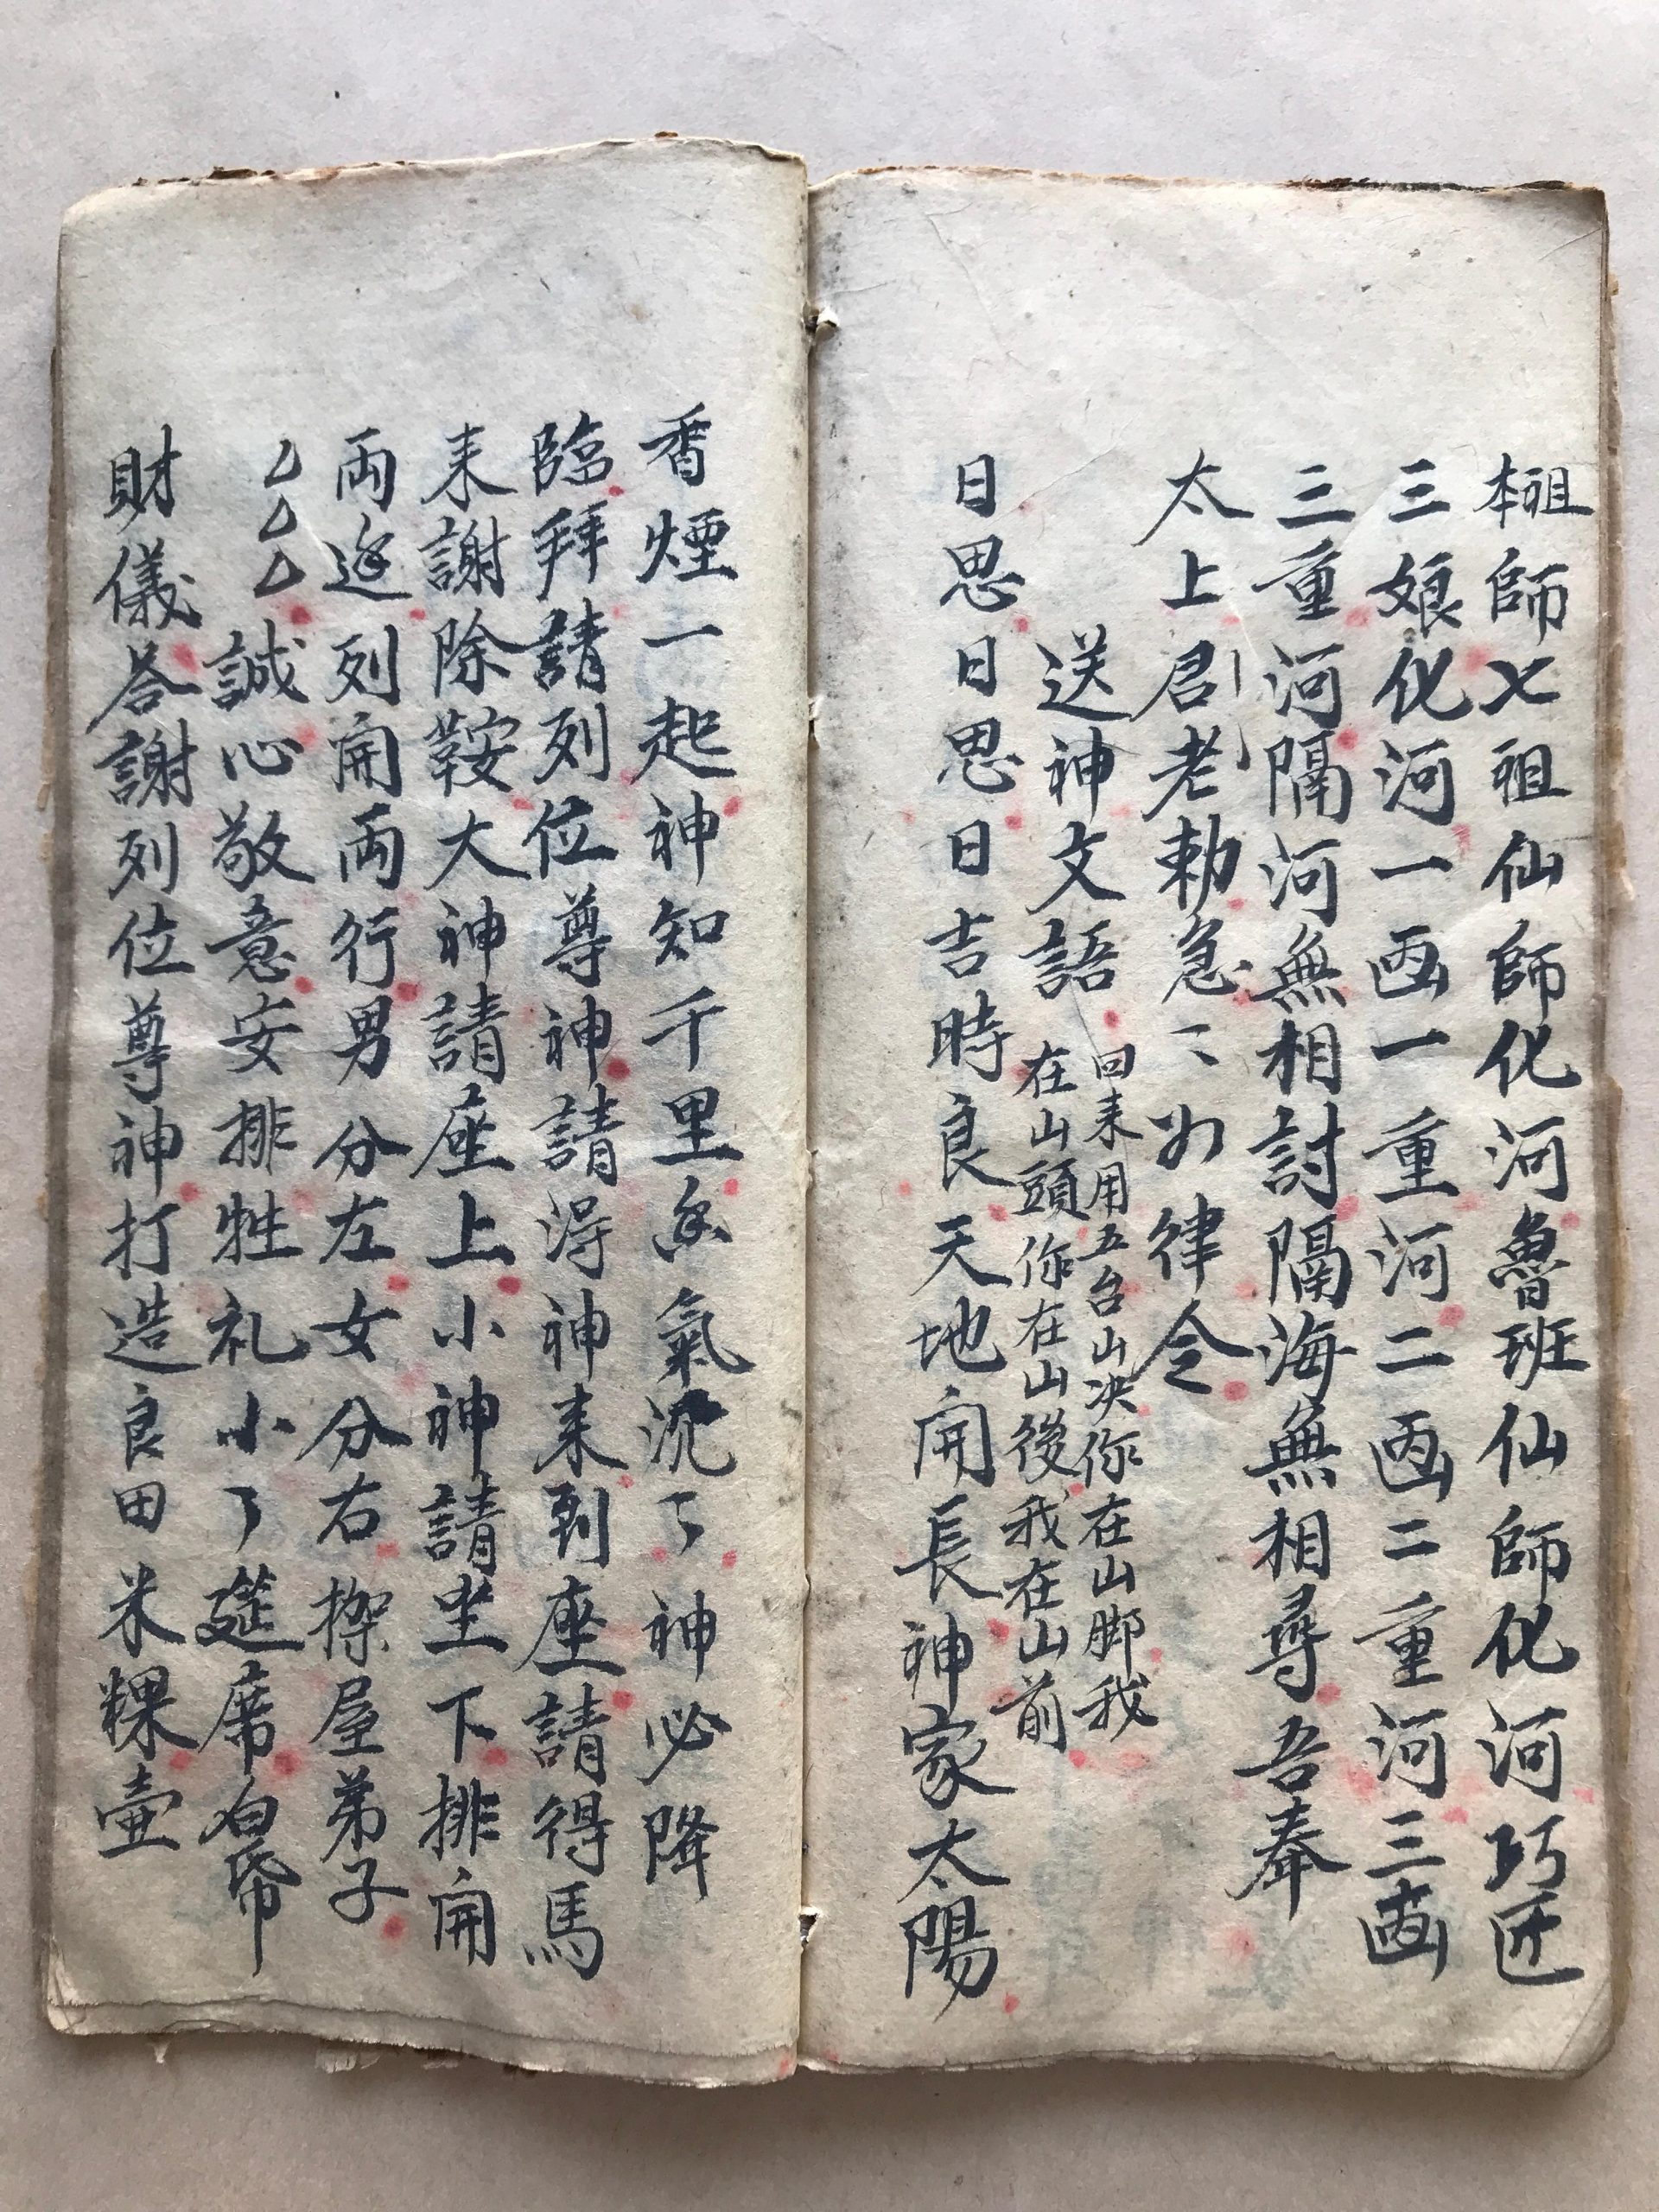 本祖師七祖仙師化河魯班仙師化河巧匠
三娘化河一画一重河二画二重河三画
三重河隔河無相討隔海無相尋吾奉
太上君老勅急〻如律令
送神文語
回来用五台山决你在山脚我
在山頭你在山後我在山前
日思日思日吉時良天地開長神家太陽
香煙一起神知千里氣沉了神必降
臨拜請列位尊神請得神来到座請得馬
来謝除鞍大神請座上小神請坐下排開
両边列開両行男分左女分右屋弟子
厶厶厶誠心敬意安排牲礼小了筵席白帋
財儀答謝列位尊神打造良田米粿壷